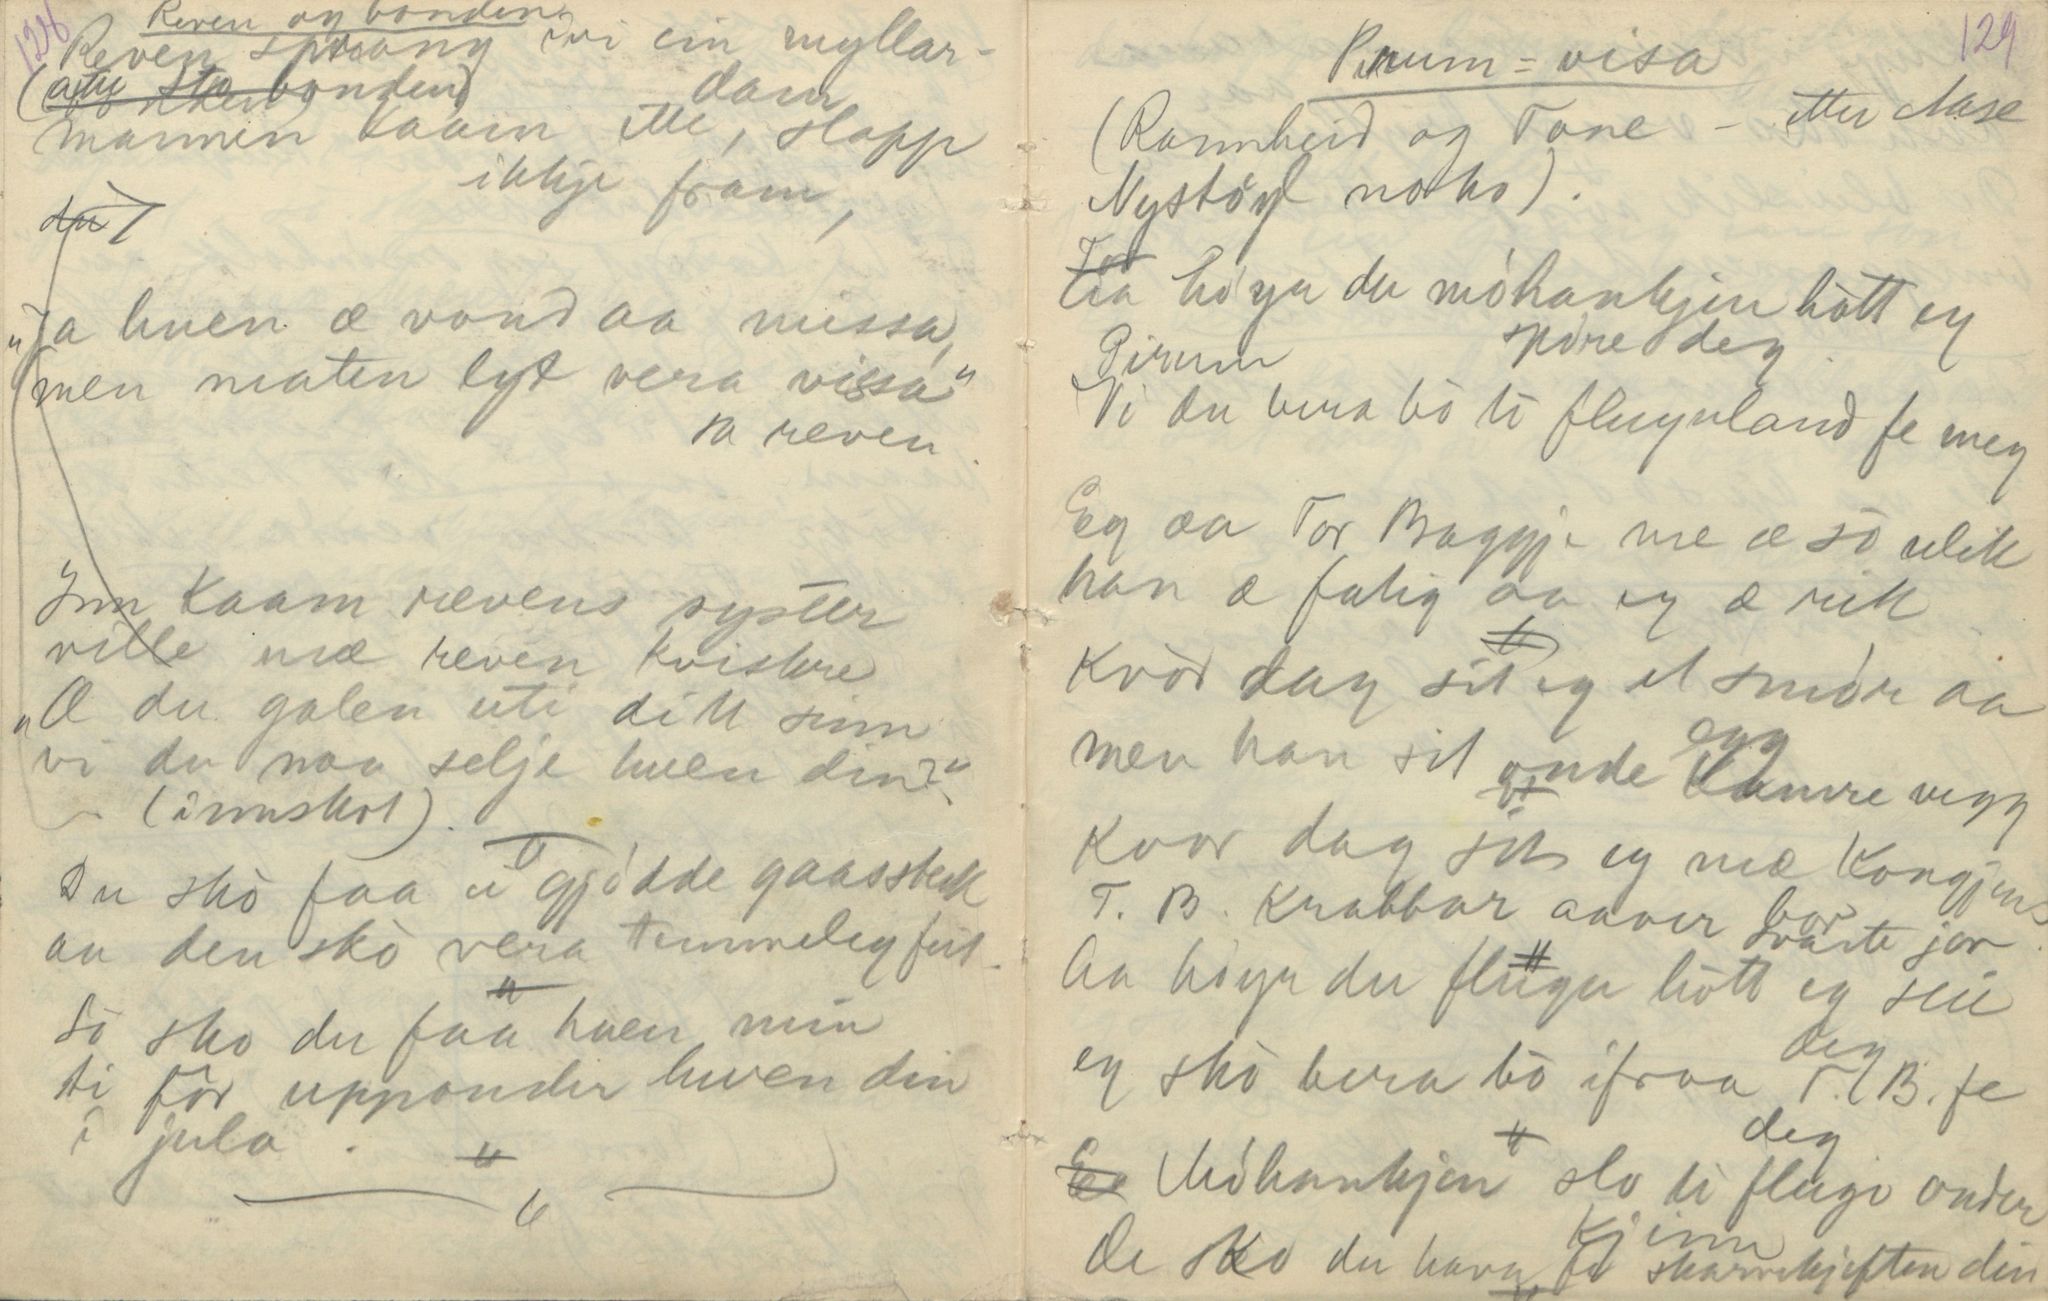 128
Reven og bonden
Reven sprang ivi ein myllar-
dam
mannen kaam itte, slapp
ikkje fram,
"Ja huen æ vond aa missa,
men maten lyt vera vissa"
sa reven.
Inn kaam revens syster
ville mæ reven kviskre
"Æ du galen uti ditt sinn
vi du naa selje huen din?"
(innskot).
Du skò faa ei gjødde gaassteik
aa den skò vera temmeleg feit.
"
Så sko du faa huen min
ti fòr upponder huven din
i jula.
"
129
Pirum-visa
(Rannheid og Tone – etter Aase
Nystöyl noko).
Aa höyr du möhankjen hòtt eg
spöre deg
Pirum
Vi du bera bò ti fluguland fe meg
Eg aa Tor Baggje me æ sò ulik
han æ fatig aa eg æ rik
"
Kvòr dag sit eg et smör aa
egg
men han sit onde kamre vegg
"
Kvor dag sit eg mæ Kongjens
bor
T. B. krabbar aaver svarte jor.
"
Aa höyr du flugu hòtt eg seie
deg
eg skò bera bò ifraa T. B. fe
deg
"
Möhankjen slo ti flugo onder
kjinn
De sko du hava fe skarvekjeften din
"